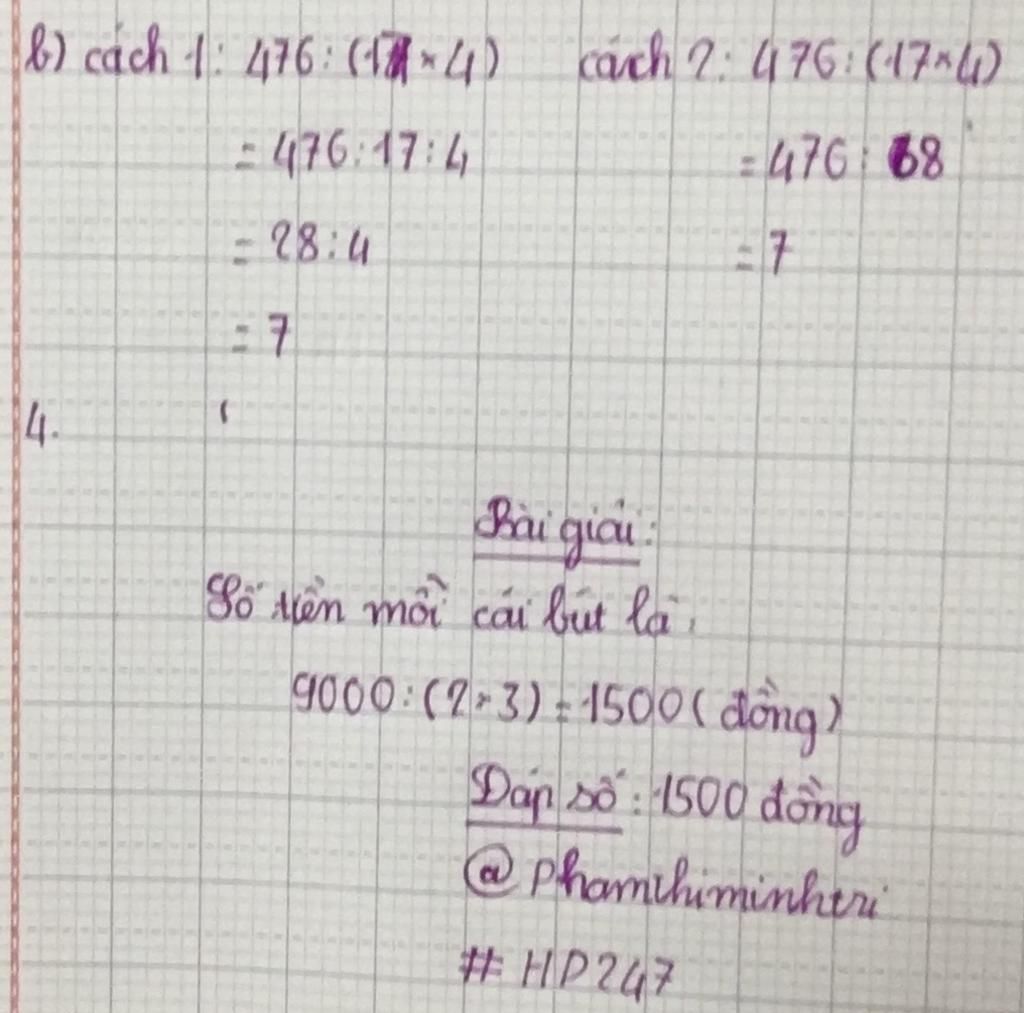 b) cách 1: 476 : (17 × 4) cách 2: 476 : (17 × 4)
= 476 : 17 : 4 = 476 : 68
= 28 : 4 = 7
= 7
4.
Bài giải:
Số tiền mỗi cái bút là:
9000 : (2 × 3) = 1500 (đồng)
Đáp số: 1500 đồng
@ phamthiminhtri
# HD247